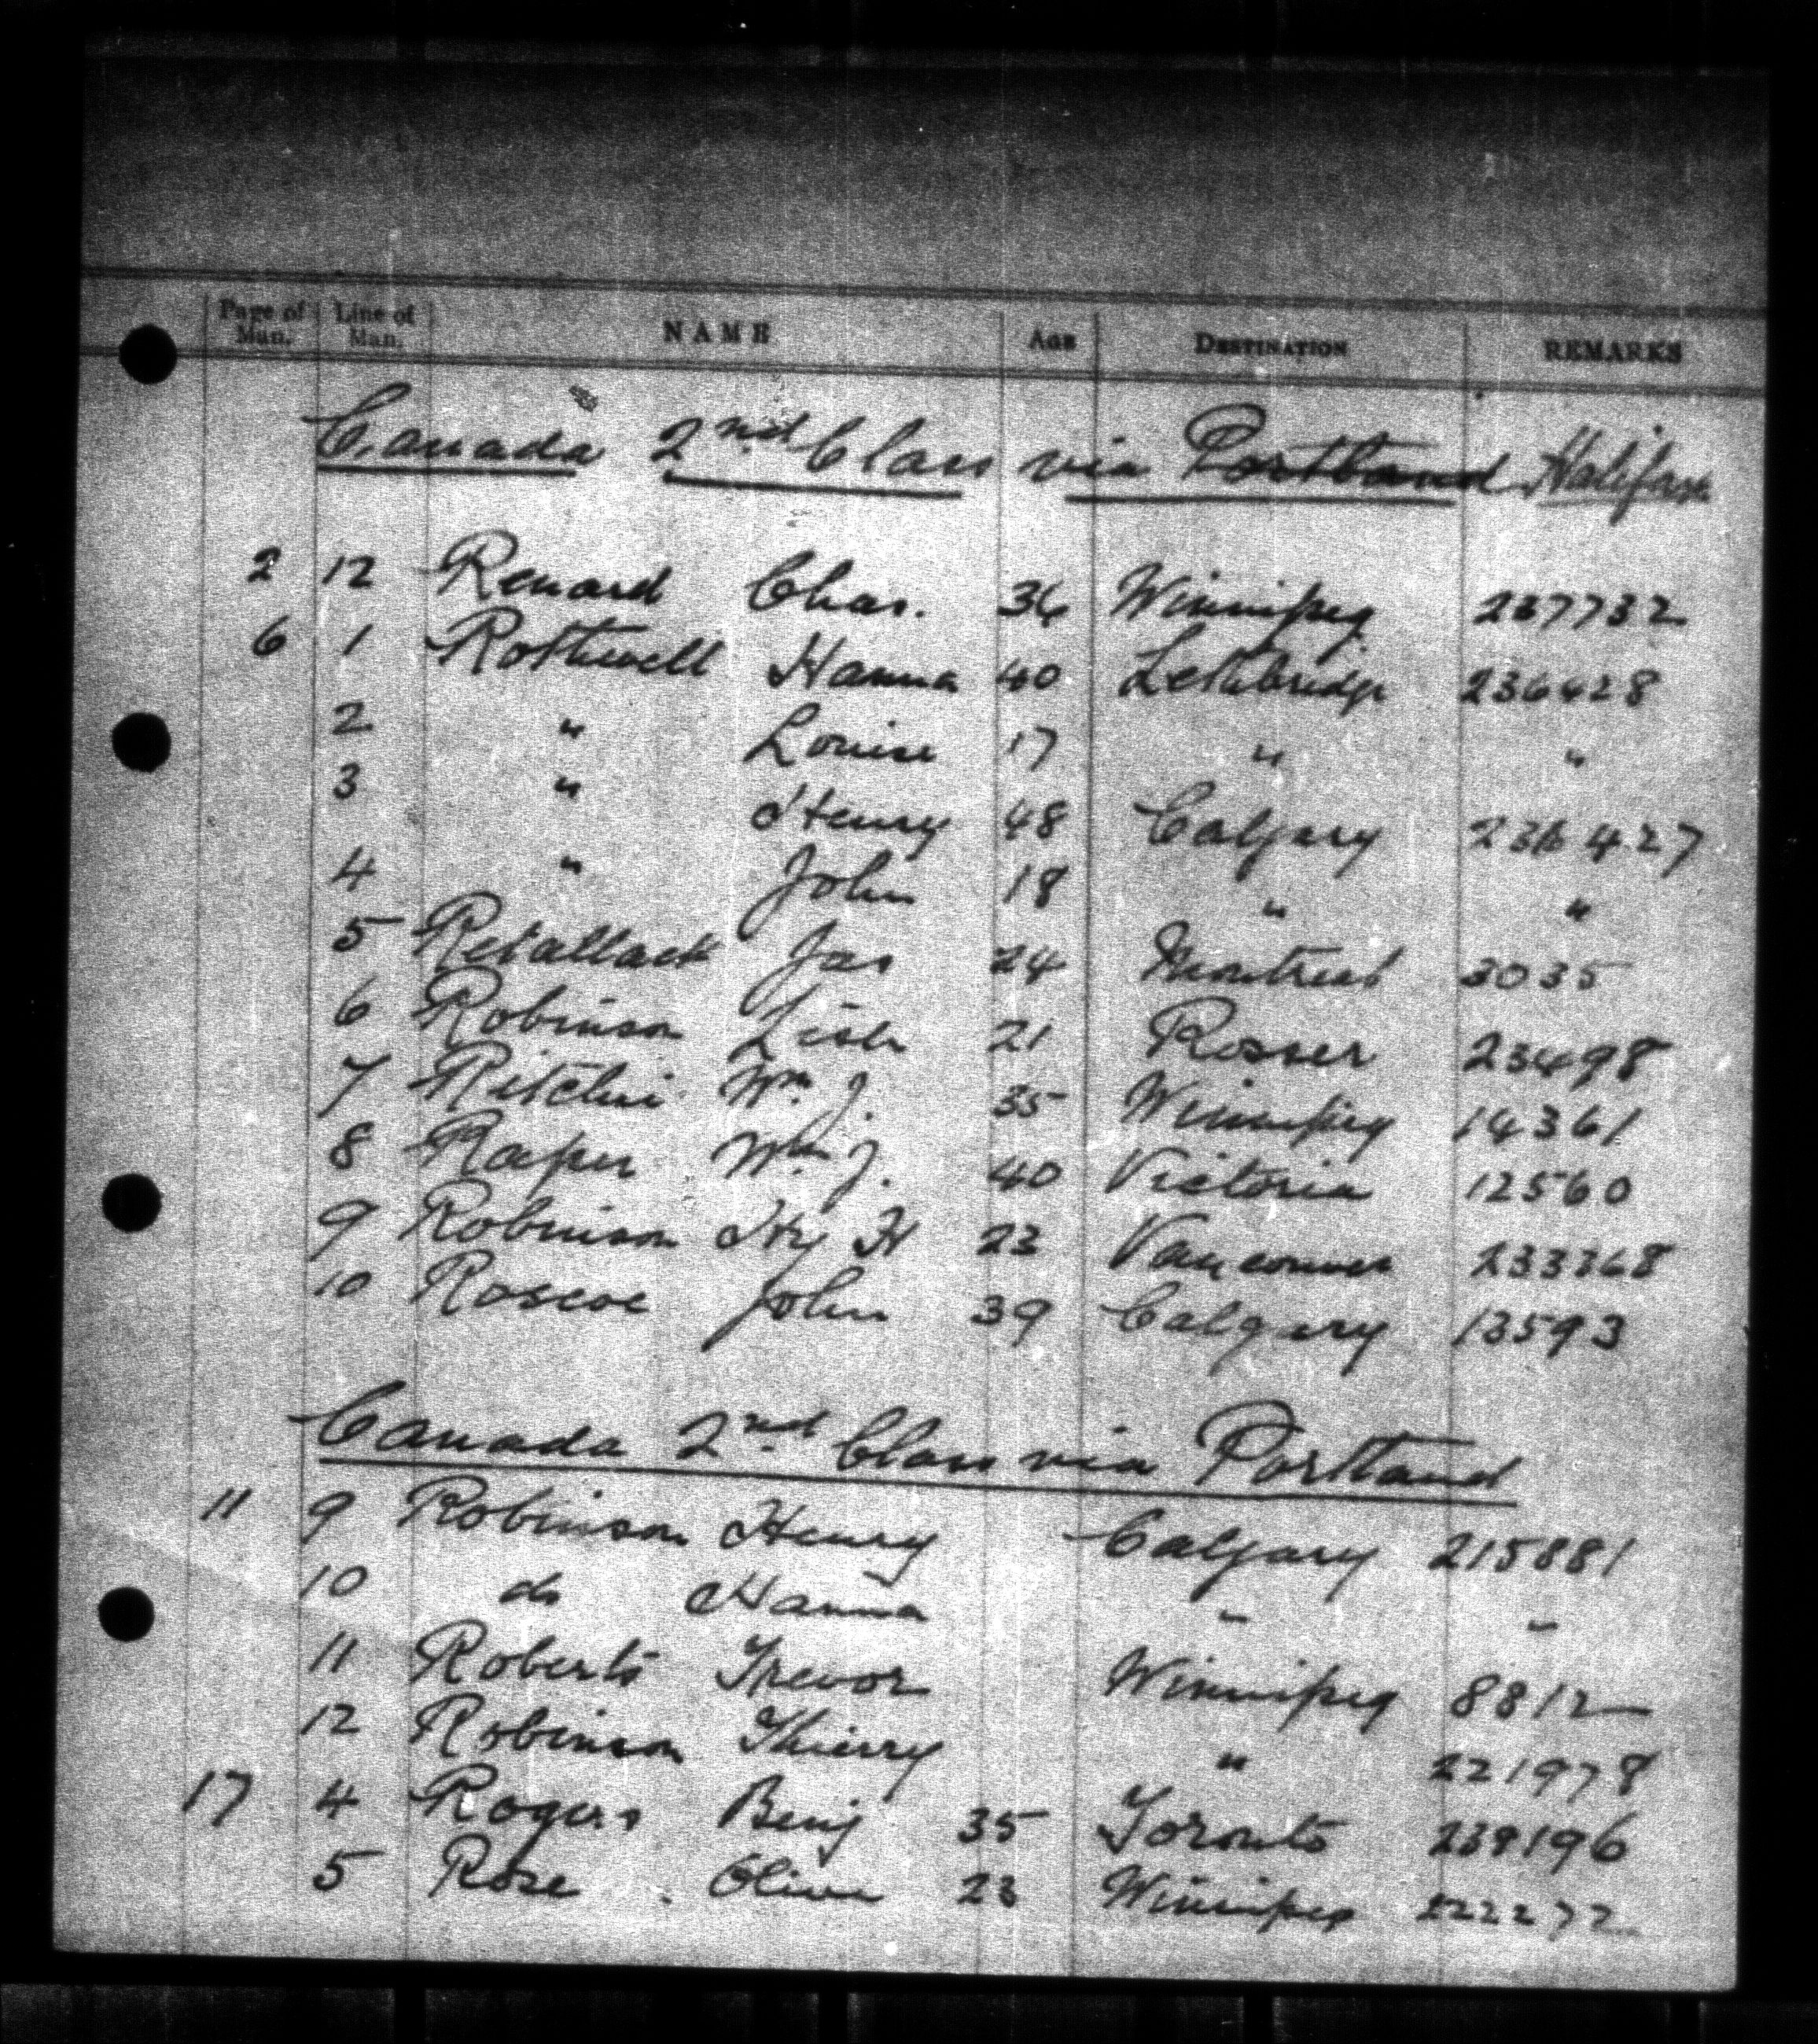 Page of Man. Line of Man. NAME AGE DESTINATION REMARKS
Canada 2nd Class via Portland Halifax
2 12 Renard Chas. 36 Winnipeg 237732
6 1 Rothwell Hanna 40 Lethbridge 236428
2 " Louise 17 " "
3 " Henry 48 Calgary 236427
4 " John 18 " "
5 Retallack Jas 24 Montreal 3035
6 Robinson 21 Rosser 23498
7 Ritchie Wm J. 35 Winnipeg 14361
8 Raper Wm J. 40 Victoria 12560
9 Robinson Hy H 23 Vancouver 233368
10 Roscoe John 39 Calgary 13593
Canada 2nd Class via Portland
11 9 Robinson Henry Calgary 215881
10 do Hanna " "
11 Roberts Trevor Winnipeg 8812
12 Robinson Thierry " 221978
17 4 Rogers Benj 35 Toronto 239196
5 Rose Olive 23 Winnipeg 222272